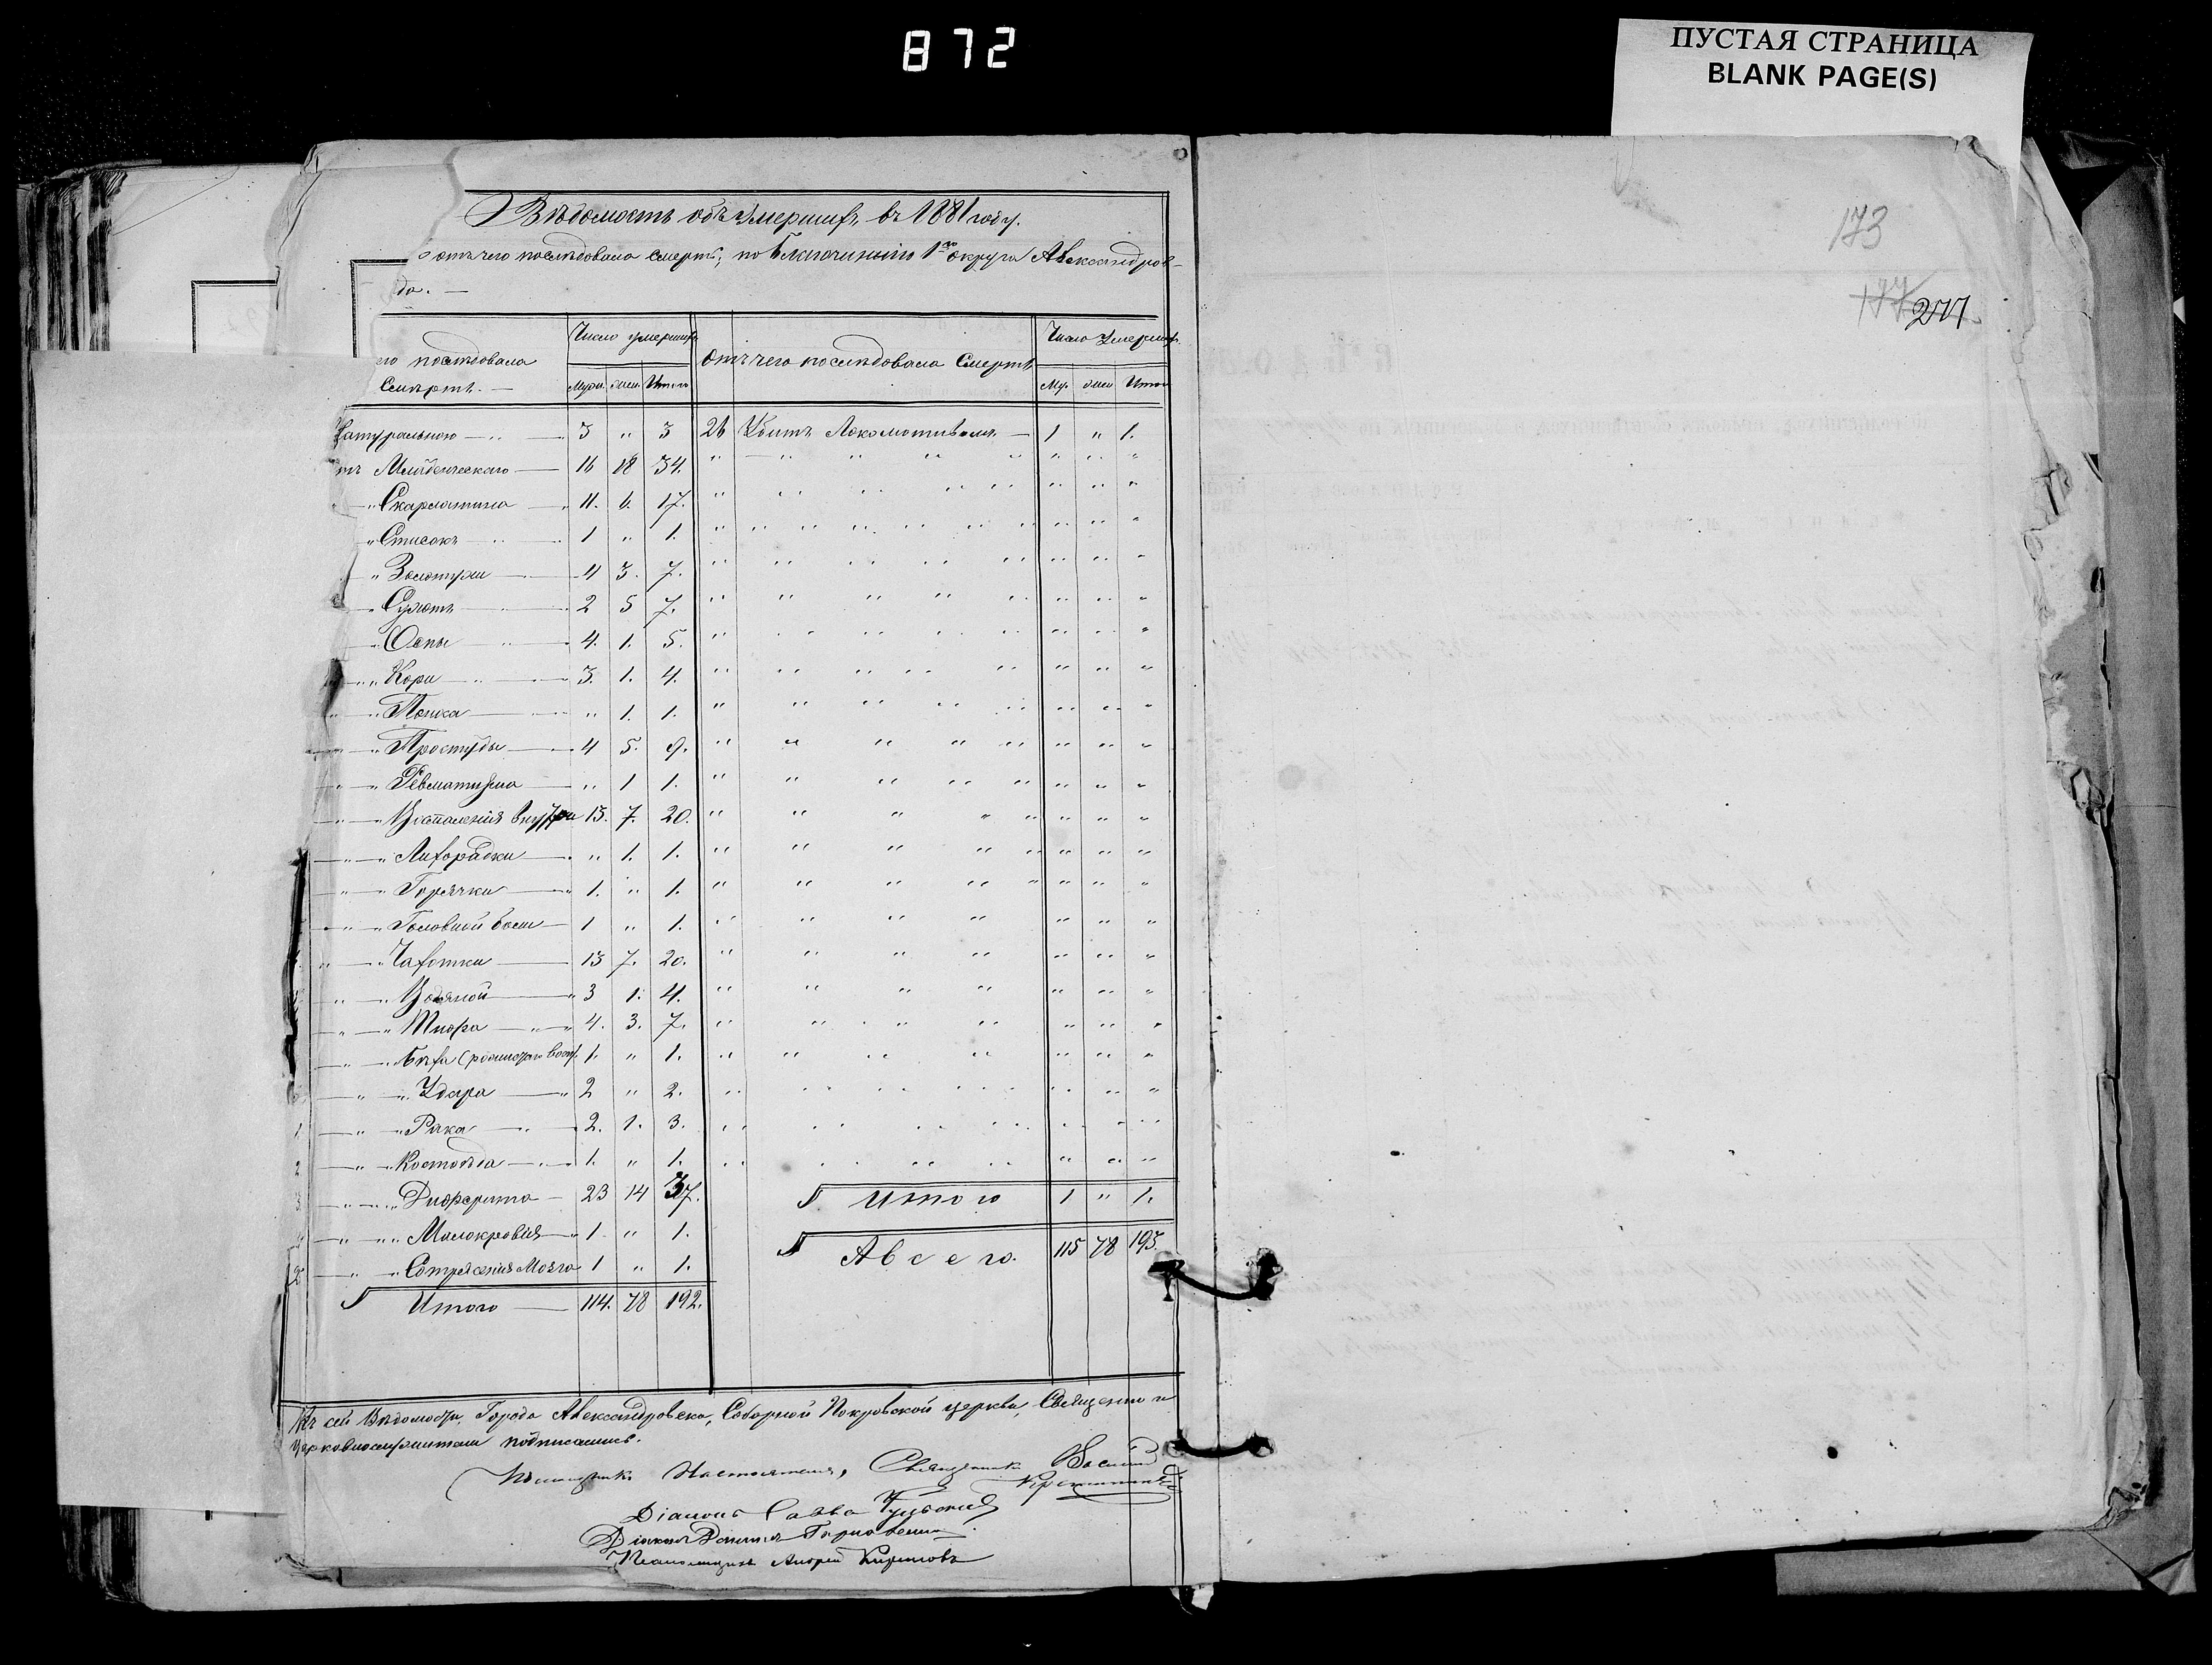 872
ПУСТАЯ СТРАНИЦА
BLANK PAGE(S)
Вѣдомость объ умершихъ въ 1881 году.
отъ чего послѣдовала смерть, по Благочинію 1го округа Александров-
да. —
173
177 277
го послѣдовала смерть. — Число умершихъ Муж. жен. Итого
отъ чего послѣдовала смерть Число умерших. Му. жен Итого
Натуральною — 3 " 3 26 Убитъ Локомотивомъ — 1 " 1.
отъ Младенческаго — 16 18 34.
" Скарлатина — 11. 6. 17.
" 1 " 1.
" Золотухи — 4 3. 7.
" Сухотъ — 2 5 7.
" Оспы — 4. 1. 5.
" Кори — 3. 1. 4.
" 1. 1.
" Простуды — 4 5. 9.
" Ревматизма — " 1 1.
" Воспаленія внутри 13. 7. 20.
" Лихорадки — " 1. 1.
" Горячки — 1. " 1.
" Головной боли — 1 " 1.
" Чахотки — 13 7. 20.
" Водяной — 3 1. 4.
" Тифа — 4. 3. 7.
" 1. " 1.
" Удара — 2 " 2.
1 " Рака — 2. 1. 3.
2 " Костоѣда — 1. " 1.
3 " Дифтерита — 23 14 37.
" Малокровія — 1 " 1.
" Сотрясенія Мозга 1 " 1.
Итого — 114. 78 192.
Итого 1 " 1.
А всего. 115 78 193.
Къ сей Вѣдомости, Города Александровска, Соборной Покровской церкви, Священно и
церковнослужители подписались.
Помощникъ Настоятеля, Священникъ Василій
Діаконъ Савва
Діаконъ Даниилъ
Псаломщикъ Андрей Кириловъ